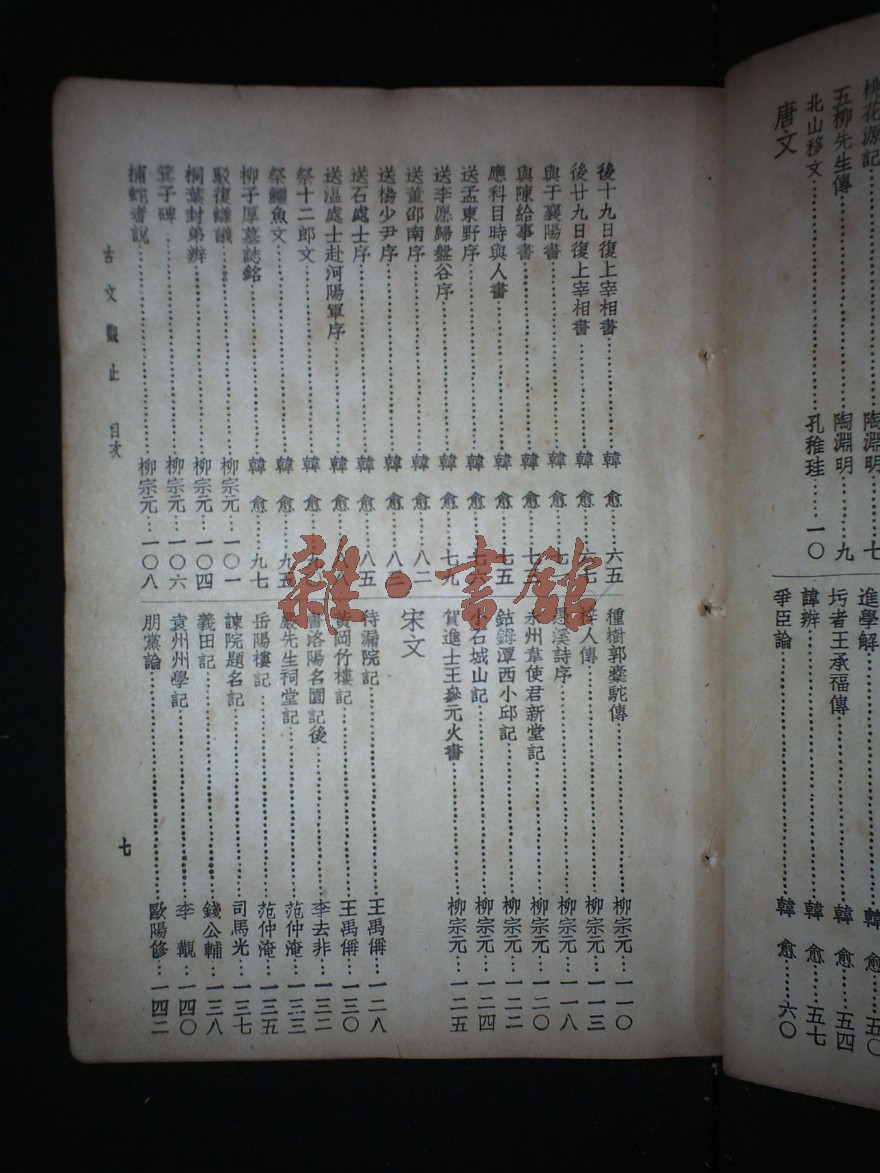 桃花源記……陶淵明…七
五柳先生傳……陶淵明…九
北山移文……孔稚珪…一〇
唐文
進學解……韓愈…五〇
圬者王承福傳……韓愈…五四
諱辨……韓愈…五七
爭臣論……韓愈……六〇
後十九日復上宰相書……韓愈…六五
後廿九日復上宰相書……韓愈…六七
與于襄陽書……韓愈…七一
與陳給事書……韓愈…七三
應科目時與人書……韓愈…七五
送孟東野序……韓愈…七六
送李愿歸盤谷序……韓愈…七九
送董邵南序……韓愈…八二
送楊少尹序……韓愈…八三
送石處士序……韓愈…八五
送溫處士赴河陽軍序……韓愈…八八
祭十二郎文……韓愈…九
祭鱷魚文……韓愈…九五
柳子厚墓誌銘……韓愈…九七
駁復讎議……柳宗元…一〇一
桐葉封弟辨……柳宗元…一〇四
箕子碑……柳宗元…一〇六
捕蛇者說……柳宗元…一〇八
種樹郭橐駝傳……柳宗元…一一〇
梓人傳……柳宗元…一一三
愚溪詩序……柳宗元…一一八
永州韋使君新堂記……柳宗元…一二〇
鈷鉧潭西小邱記……柳宗元…一二二
小石城山記……柳宗元…一二四
賀進士王參元火書……柳宗元…一二五
宋文
待漏院記……王禹偁…一二八
黃岡竹樓記……王禹偁…一三〇
書洛陽名園記後……李去非…一三二
嚴先生祠堂記……范仲淹…一三三
岳陽樓記……范仲淹…一三五
諫院題名記……司馬光…一三七
義田記……錢公輔…一三八
袁州州學記……李覯…一四〇
朋黨論……歐陽修…一四二
古文觀止 目次
七
雜·書館